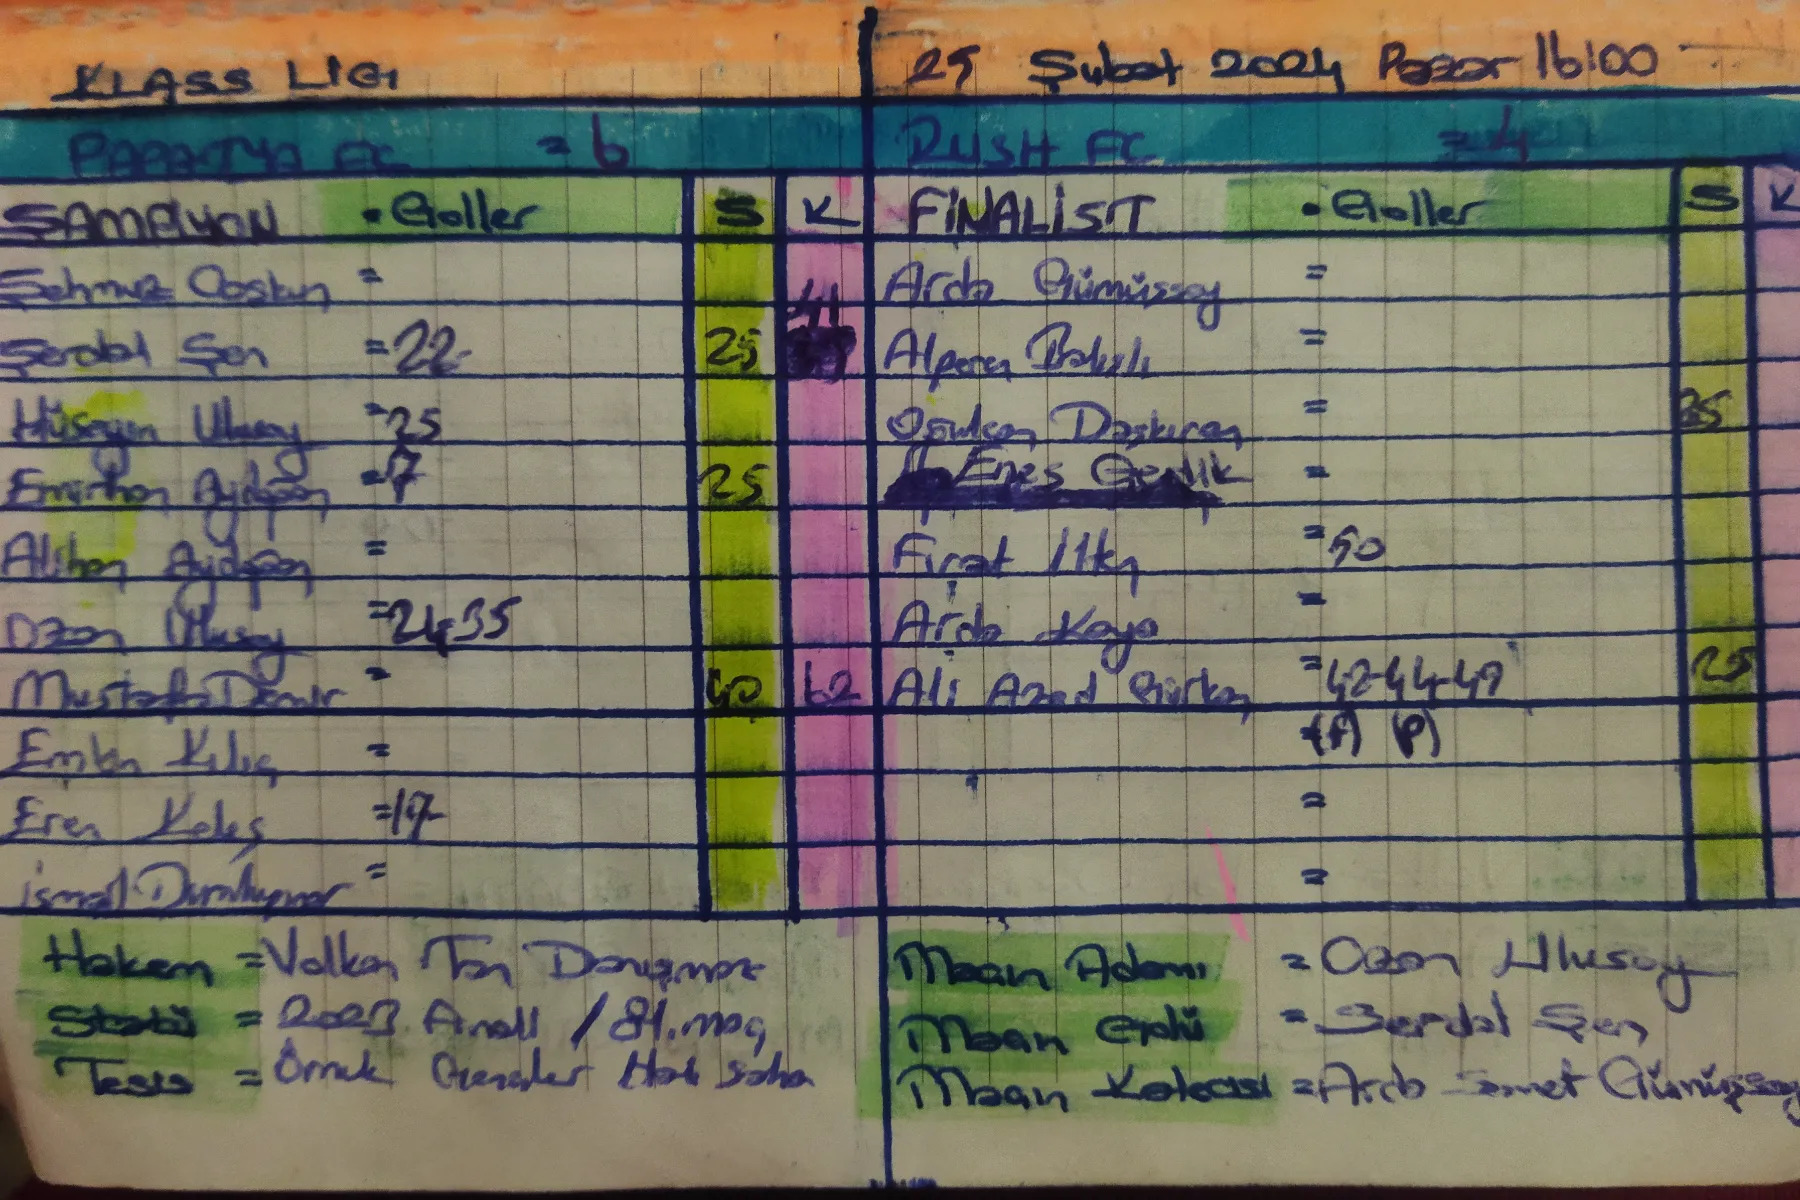 KLASS LIGI
25 Şubat 2024 Pazar 16:00
PAPATYA FC = 6
RUSH FC = 4
ŞAMPİYON • Goller S K
FİNALİST • Goller S K
Şehmuz Coşkun =
Serdal Şen = 22 25 41
Hüseyin Ulusoy = 25
Emirhan Aydoğan = 7 25
Alihan Aydoğan =
Ozan Ulusoy = 24-35
Mustafa Demir = 40 62
Emken Kılıç =
Eren Keleş = 17
İsmail Dumlupınar =
Arda Gümüşsoy =
Alperen =
Oğulcan Daşkıran = 35
Enes Gedik =
Fırat = 50
Arda Kaya =
Ali Azad Gürkan = 42-44-49 25
= (P) (P)
=
=
Hakem = Volkan Tan Danışmaz
Statü = 2023 / 81. maç
Tesis = Örnek Gençler Halı Saha
Maçın Adamı = Ozan Ulusoy
Maçın Golü = Serdal Şen
Maçın Kalecisi = Arda Samet Gümüşsoy